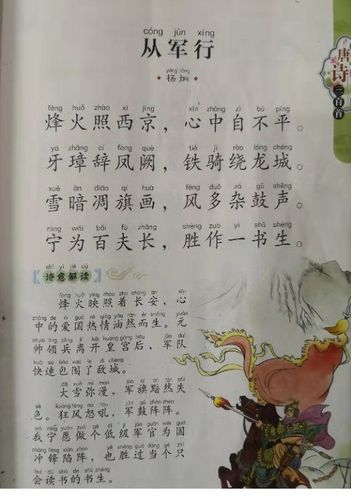 cóng jūn xíng
从军行
yáng jiǒng
杨炯
唐诗三百首
fēng huǒ zhào xī jīng xīn zhōng zì bù píng
烽火照西京，心中自不平。
yá zhāng cí fèng què tiě jì rào lóng chéng
牙璋辞凤阙，铁骑绕龙城。
xuě àn diāo qí huà fēng duō zá gǔ shēng
雪暗凋旗画，风多杂鼓声。
nìng wéi bǎi fū zhǎng shèng zuò yì shū shēng
宁为百夫长，胜作一书生。
shī yì jiě dú
诗意解读
烽火映照着长安，心
中的爱国热情油然而生。元
帅领兵离开皇宫后，军队
快速包围了敌城。
大雪弥漫，军旗黯然失
色。狂风怒吼，军鼓阵阵。
我宁愿做个低级军官为国
冲锋陷阵，也胜过当个只
会读书的书生。